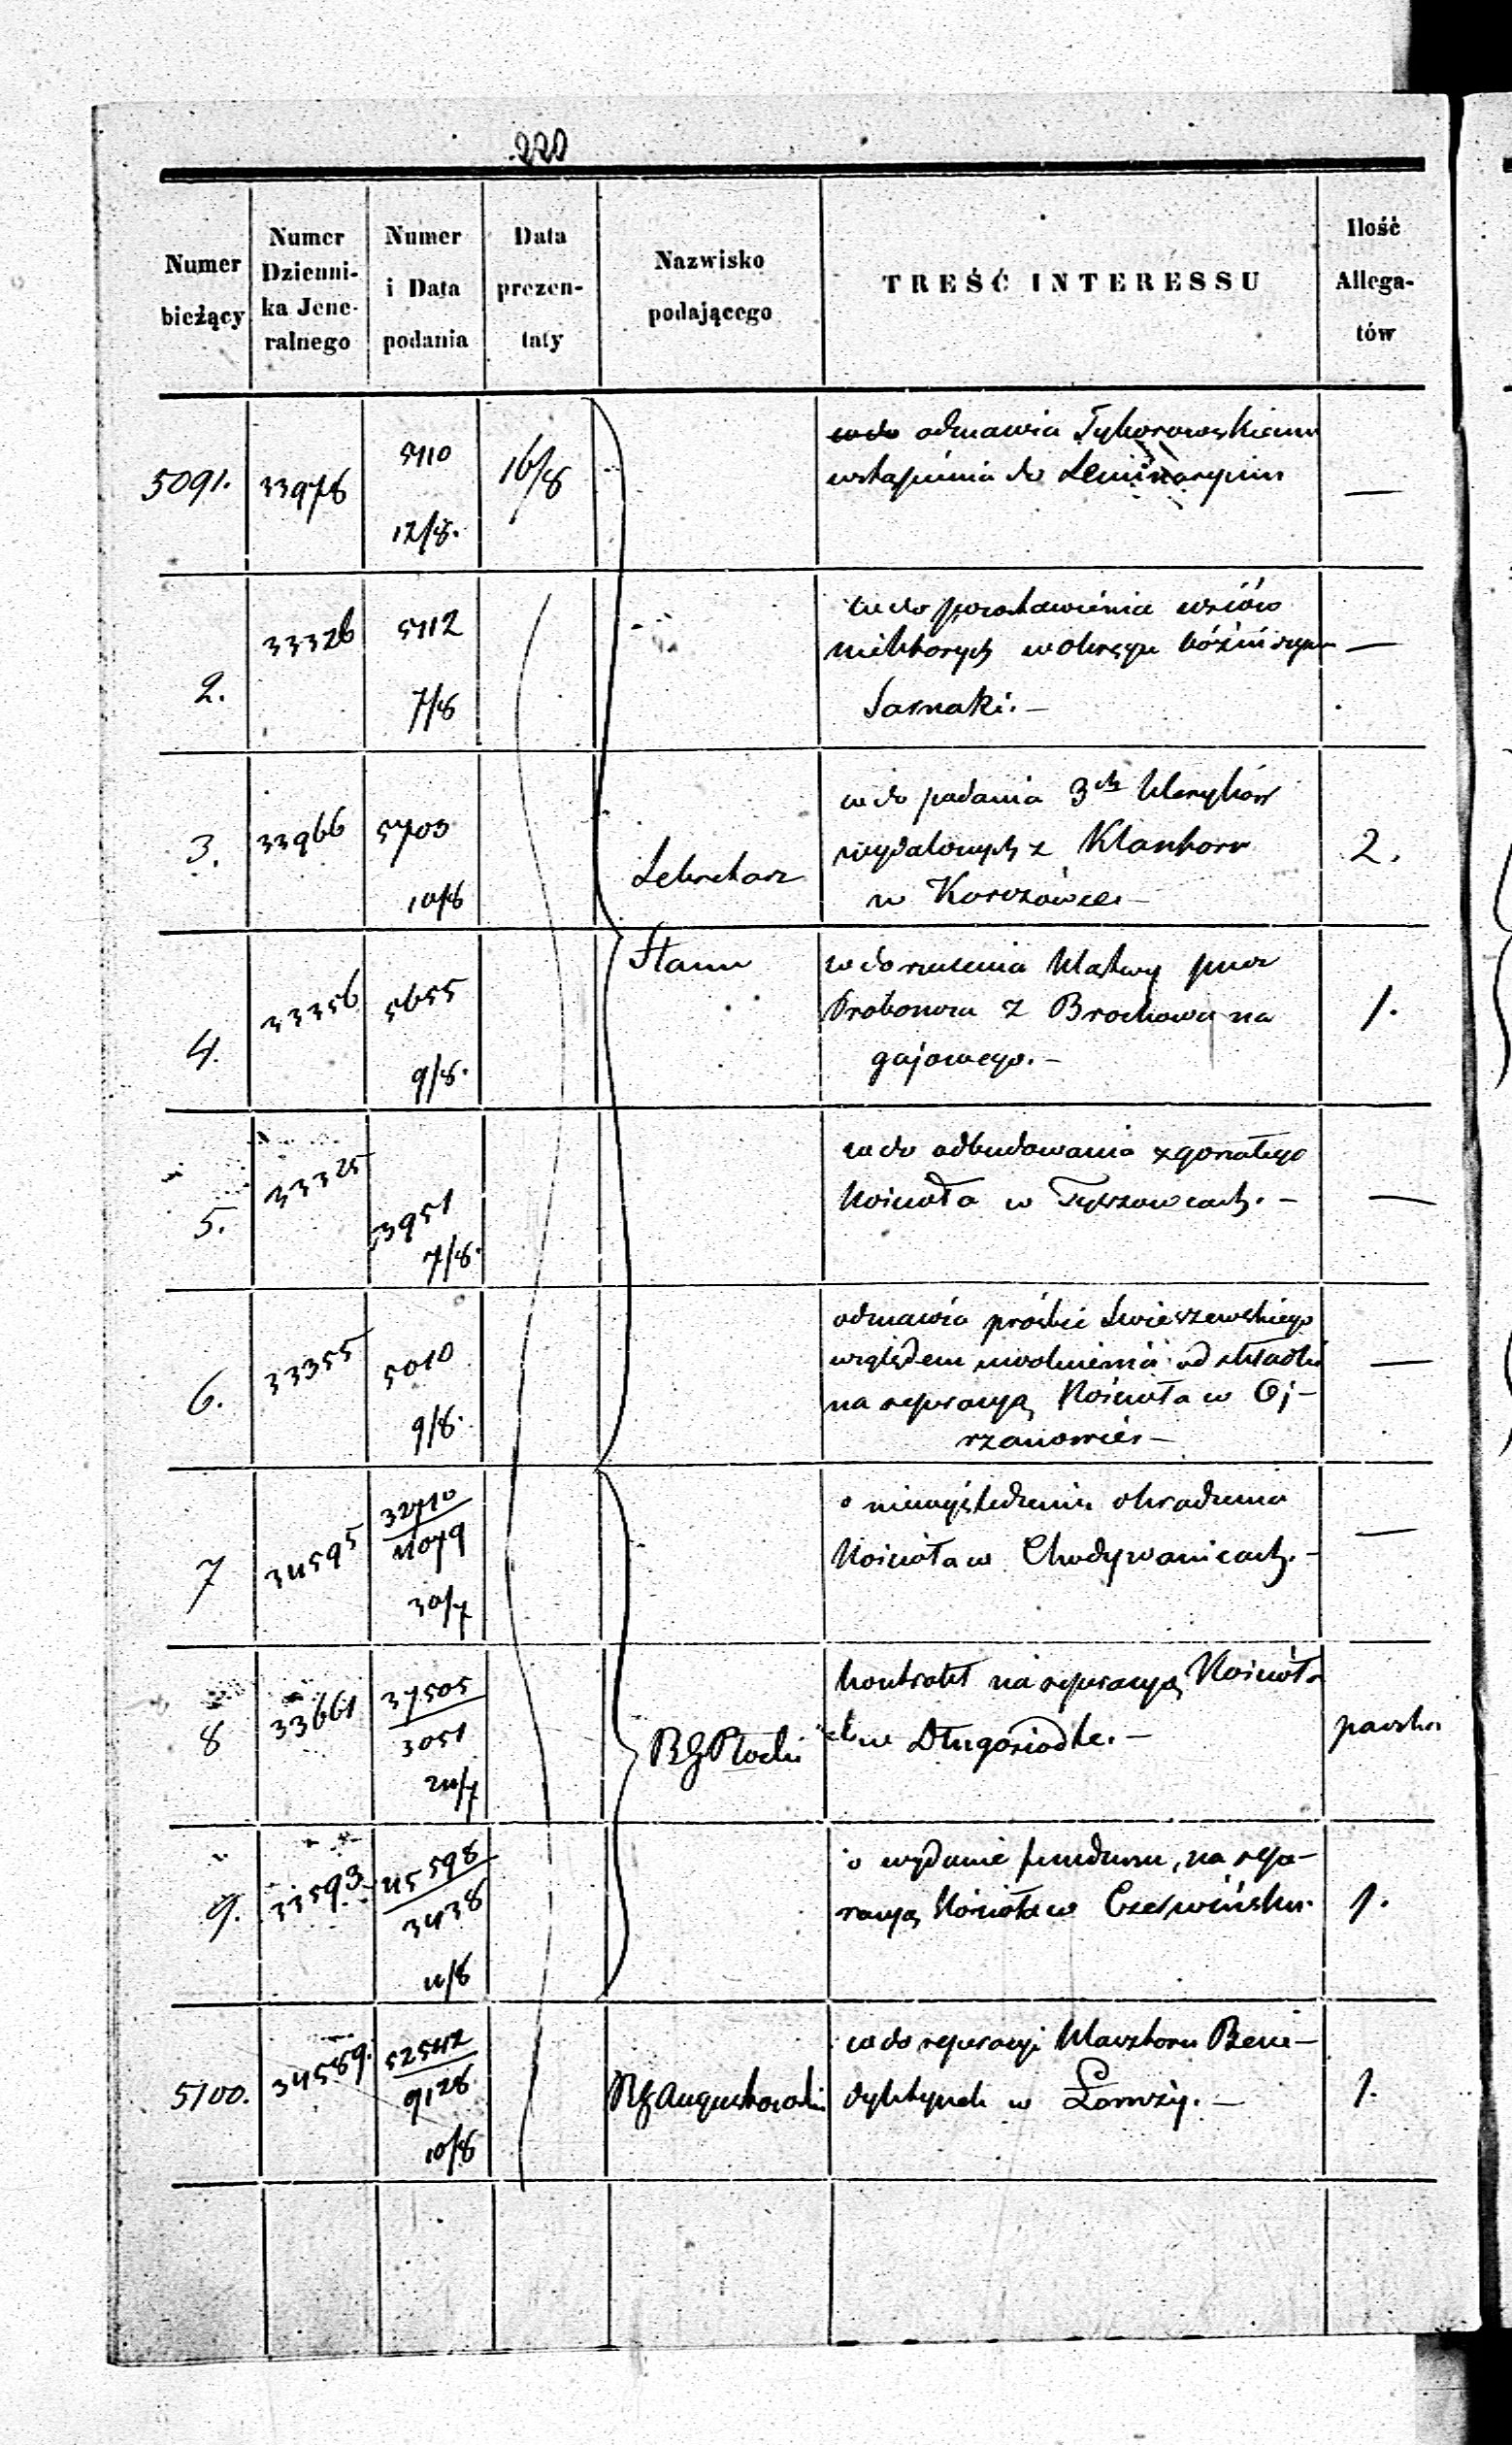 220
Numer bieżący
Numer Dzienni-ka Jene-ralnego
Numer i Data podania
Data prezen-taty
Nazwisko podającego
TREŚĆ INTERESSU
Ilość Allega-tów
5091. 33978 5110 12/8. 16/8
odmawia Tyborowskiemu
wstąpienia do Seminaryum
—
2. 33326 5112 7/8
co do pozostawienia wsiów
niektorych w okręgu bóźniczym —
Sarnaki. —
3. 33966 5703 10/8
Sekretarz
Stanu
co do podania 3ch Kleryków
wydalonych z Klasztoru
w
2.
4. 33356 5655 9/8.
co do rzucenia Klątwy przez
Proboszcza z Brochowa na
gajowego. —
1.
5. 33325 3951 7/8.
co do odbudowania zgorzałego
Kościoła w Tyszowcach. —
—
6. 33355 5010 9/8.
odmawia prośbie Swieszewskiego
względem uwolnienia od składki —
na reperacyą Kościoła w Oj-
rzanowie. —
7 34595 32710/4079 30/7
o okradzenia
Kościoła w Chodywanicach. —
—
8 33661 37505/3051 24/7
RG Płocki
kontrakt na reperacyą Kościoła
w Długosiodle. —
paczka
9. 33593 45598/3438 4/8
o wydanie funduszu, na repa-
racyą Kościoła w Czerwińsku.
1.
5100. 34589. 52542/9128 10/8
RG Augustowski
co do reperacyi Klasztoru Bene-
dyktynek w Łomży. —
1.